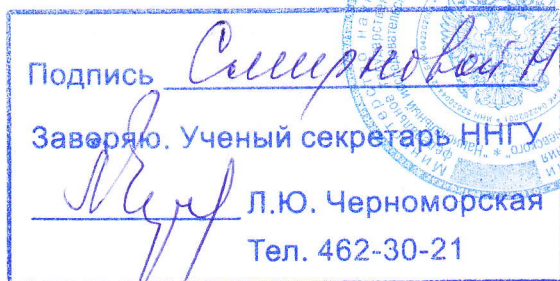 Подпись Смирновой Н
Заверяю. Ученый секретарь ННГУ
Л.Ю. Черноморская
Тел. 462-30-21